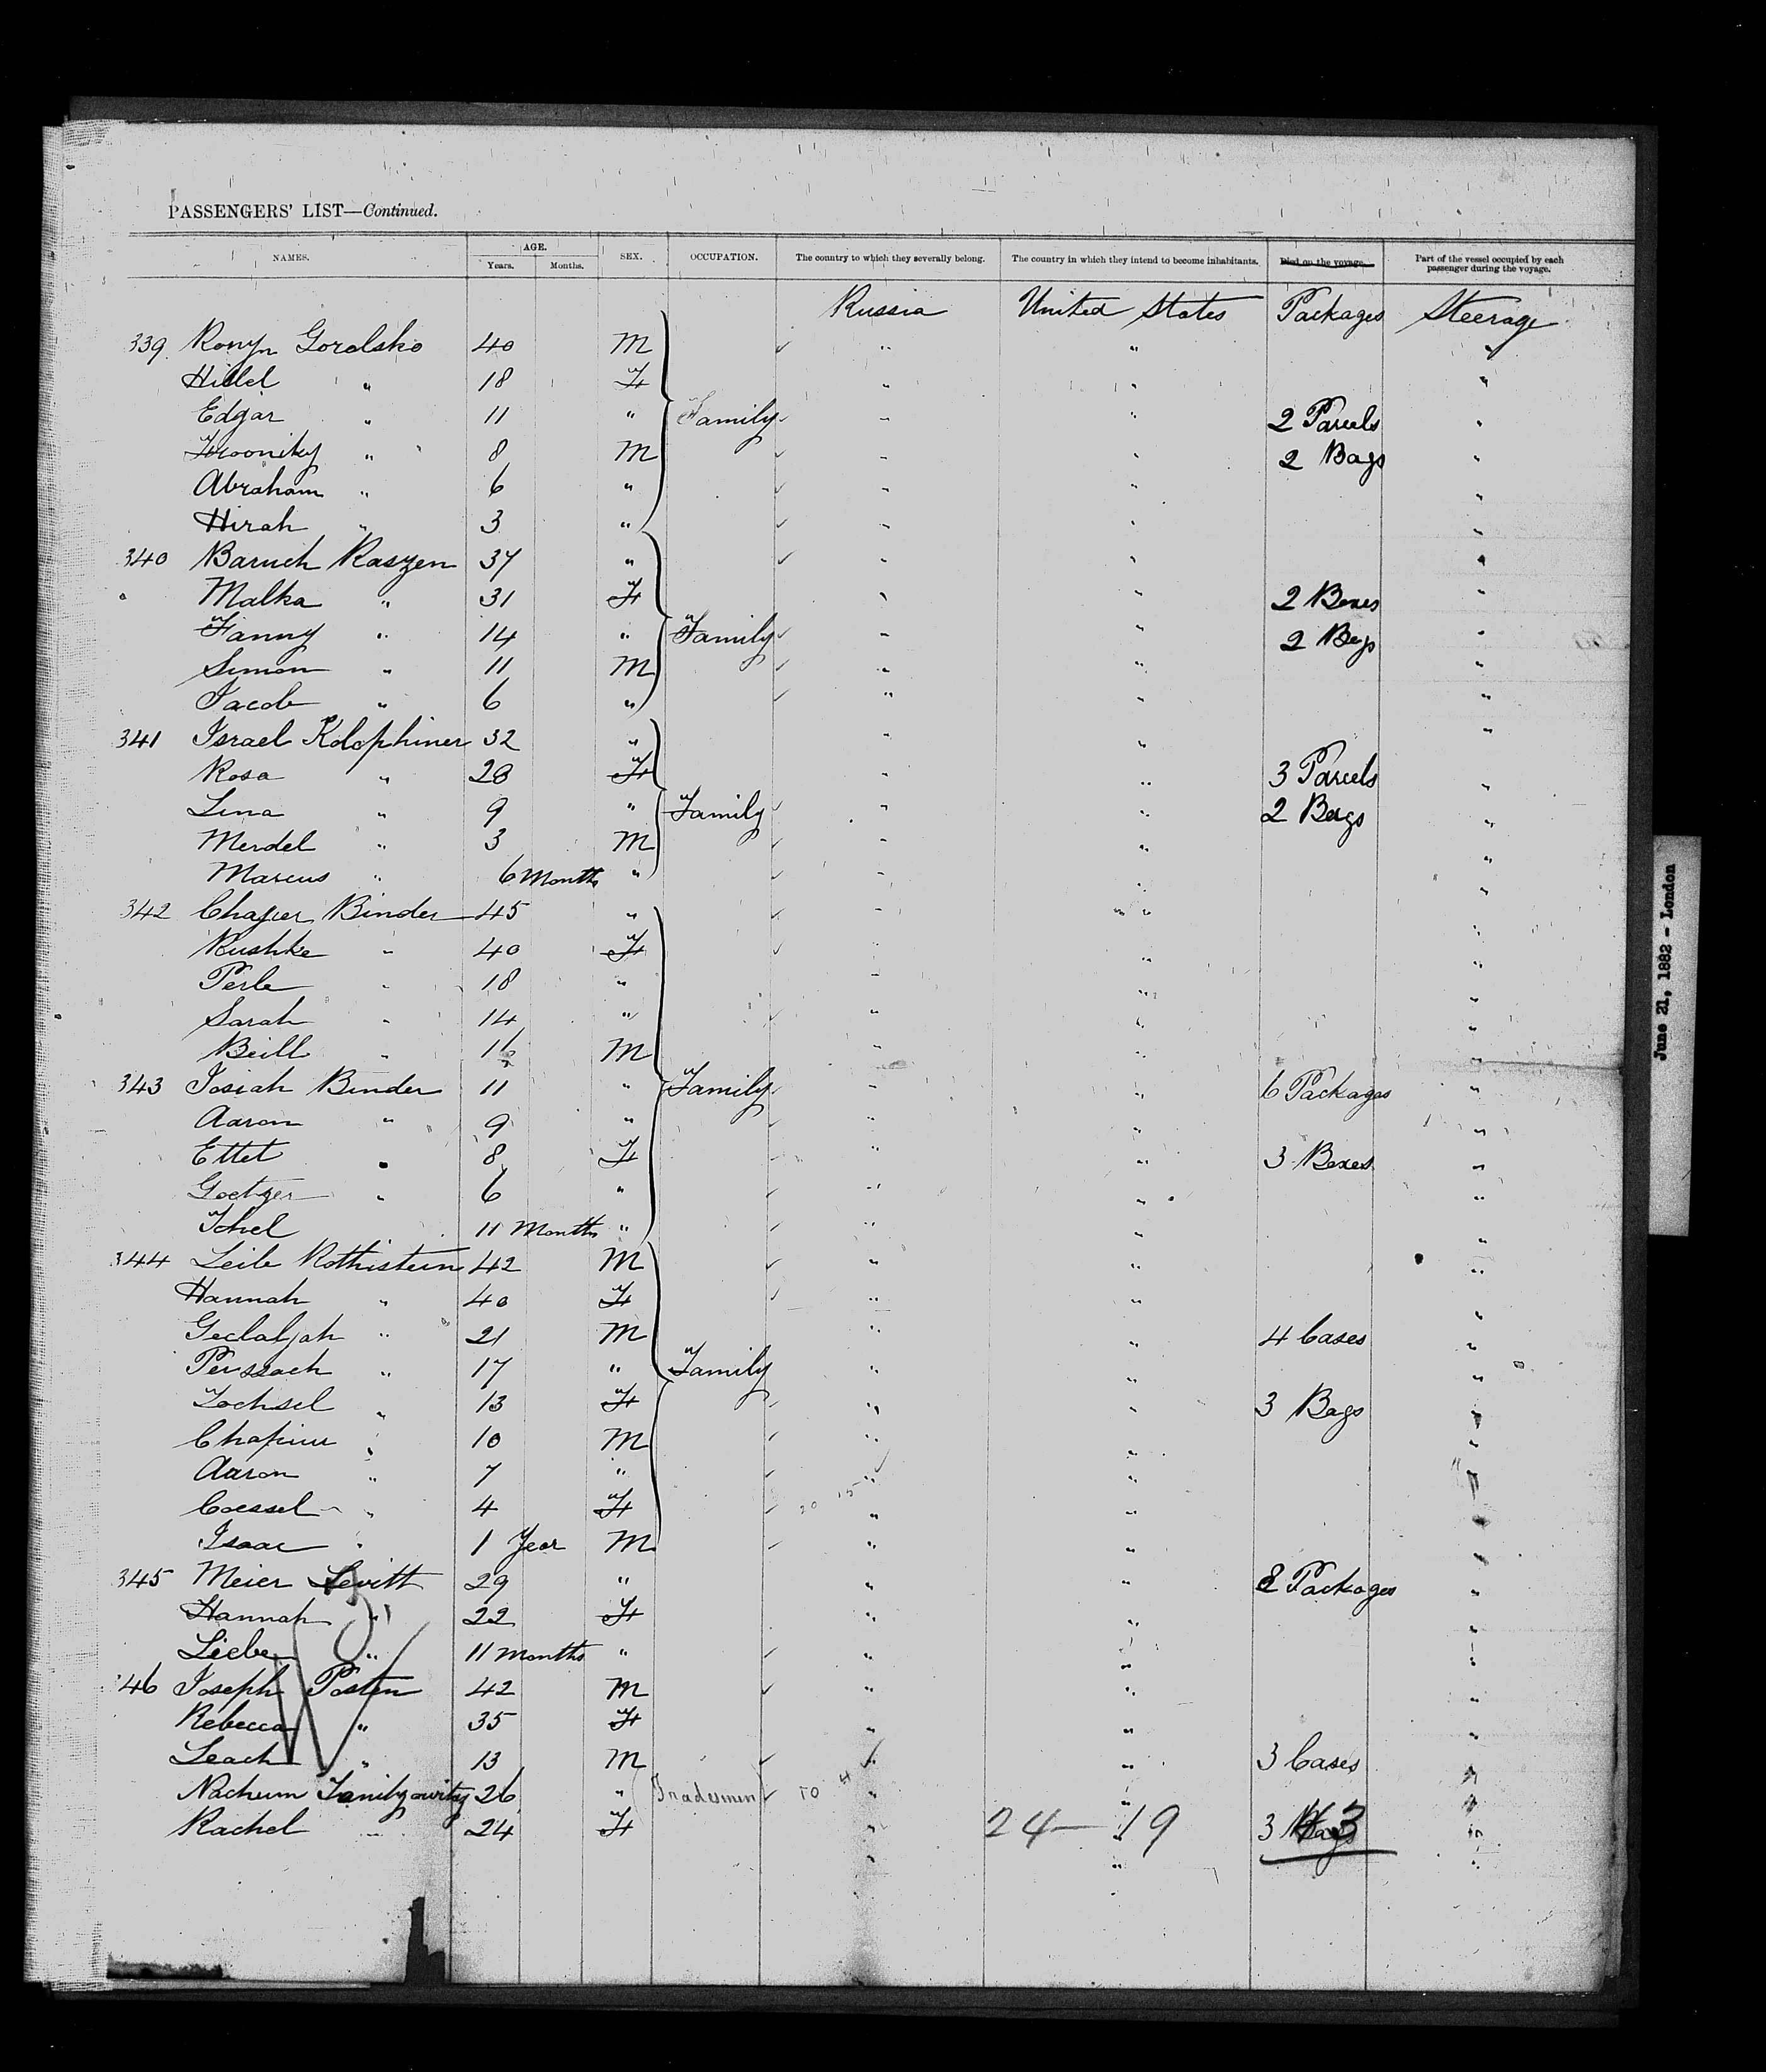 PASSENGERS' LIST—Continued.
NAMES. AGE. Years. Months. SEX. OCCUPATION. The country to which they severally belong. The country in which they intend to become inhabitants. Died on the voyage. Part of the vessel occupied by each passenger during the voyage.
Russia United States Packages Steerage
339 Gorolsko 40 M " " "
Hillel " 18 F " " "
Edgar " 11 " Family " " 2 Parcels "
" 8 M " " 2 Bags "
Abraham " 6 " " " "
Hirah " 3 " " " "
340 Baruch Raszen 37 " " " "
Malka " 31 F " " 2 Boxes "
Fanny " 14 " Family " " 2 Bags "
Simon " 11 M " " "
Jacob " 6 " " " "
341 Israel Kolophiner 32 " " " "
Rosa " 28 F " " 3 Parcels "
Lina " 9 " Family " " 2 Bags "
Mendel " 3 M " " "
Marcus " 6 Months " " " "
342 Binder 45 " " " "
Rushke " 40 F " " "
Perle " 18 " " " "
Sarah " 14 " " " "
Beill " M " " "
343 Josiah Binder 11 " Family " " 6 Packages "
Aaron " 9 " " " "
Ettet " 8 F " " 3 Boxes "
Goetzer " 6 " " " "
11 Months " " " "
344 Leib Rothistein 42 M " " "
Hannah " 40 F " " "
Gedaljah " 21 M " " 4 Cases "
Perssach " 17 " Family " " "
Zochsel " 13 F " " 3 Bags "
" 10 M " " "
Aaron " 7 " " " "
Coessel " 4 F " " "
Isaac " 1 Year M " " "
345 Meier Levitt 29 " " " Packages "
Hannah " 22 F " " "
Liebe " 11 Months " " " "
346 Joseph Posten 42 M " " "
Rebecca " 35 F " " "
Leach " 13 M " " 3 Cases "
Nachum 26 " Tradesmen 10 4 " " "
Rachel " 24 F " 24 — 19 3 Bags 43 "
June 21, 1882 - London